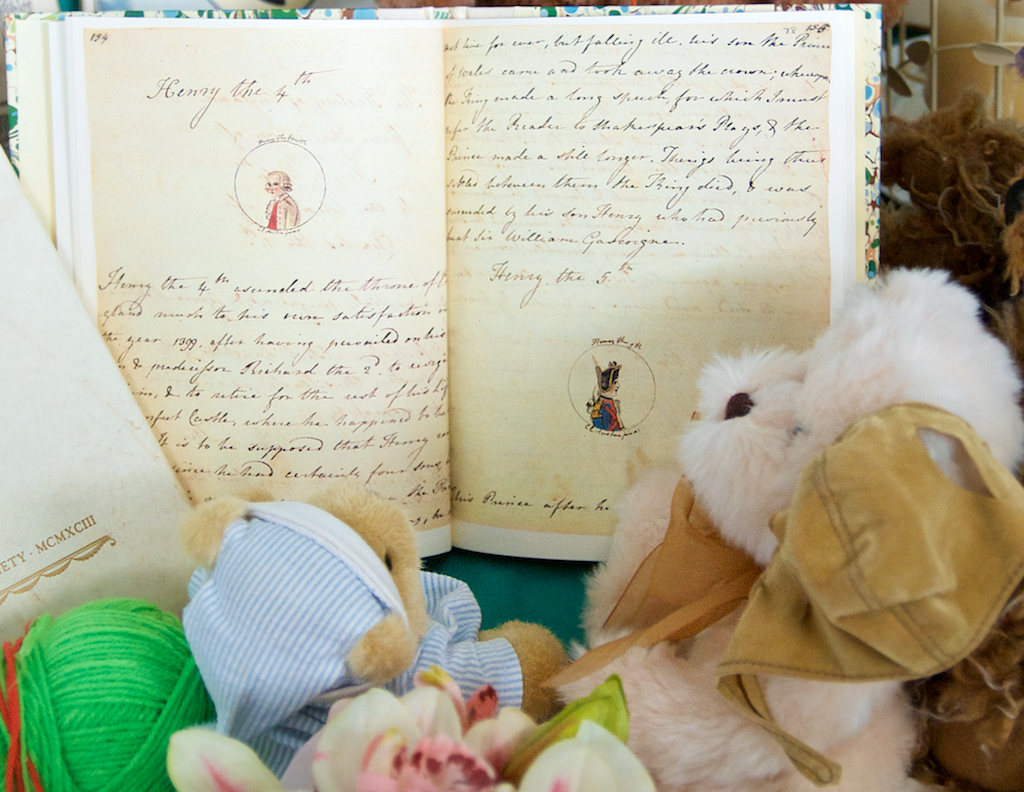 194
Henry the 4th
Henry the 4th ascended the throne of
gland much to his own satisfaction in
the year 1399, after having prevailed on his
& predecessor Richard the 2d, to resign
& to retire for the rest of his
Castle, where he happened to be
It is to be supposed that Henry
since he had certainly four sons,
155
not live for ever, but falling ill, his son the Prince
of Wales came and took away the crown; whereupon
the King made a long speech, for which I must
refer the Reader to Shakespear's Plays, & the
Prince made a still longer. Things being thus
settled between them the King died, & was
succeeded by his son Henry who had previously
beat Sir William Gascoigne.
Henry the 5th
Henry the 5th
this Prince after he
ETY · MCMXCIII